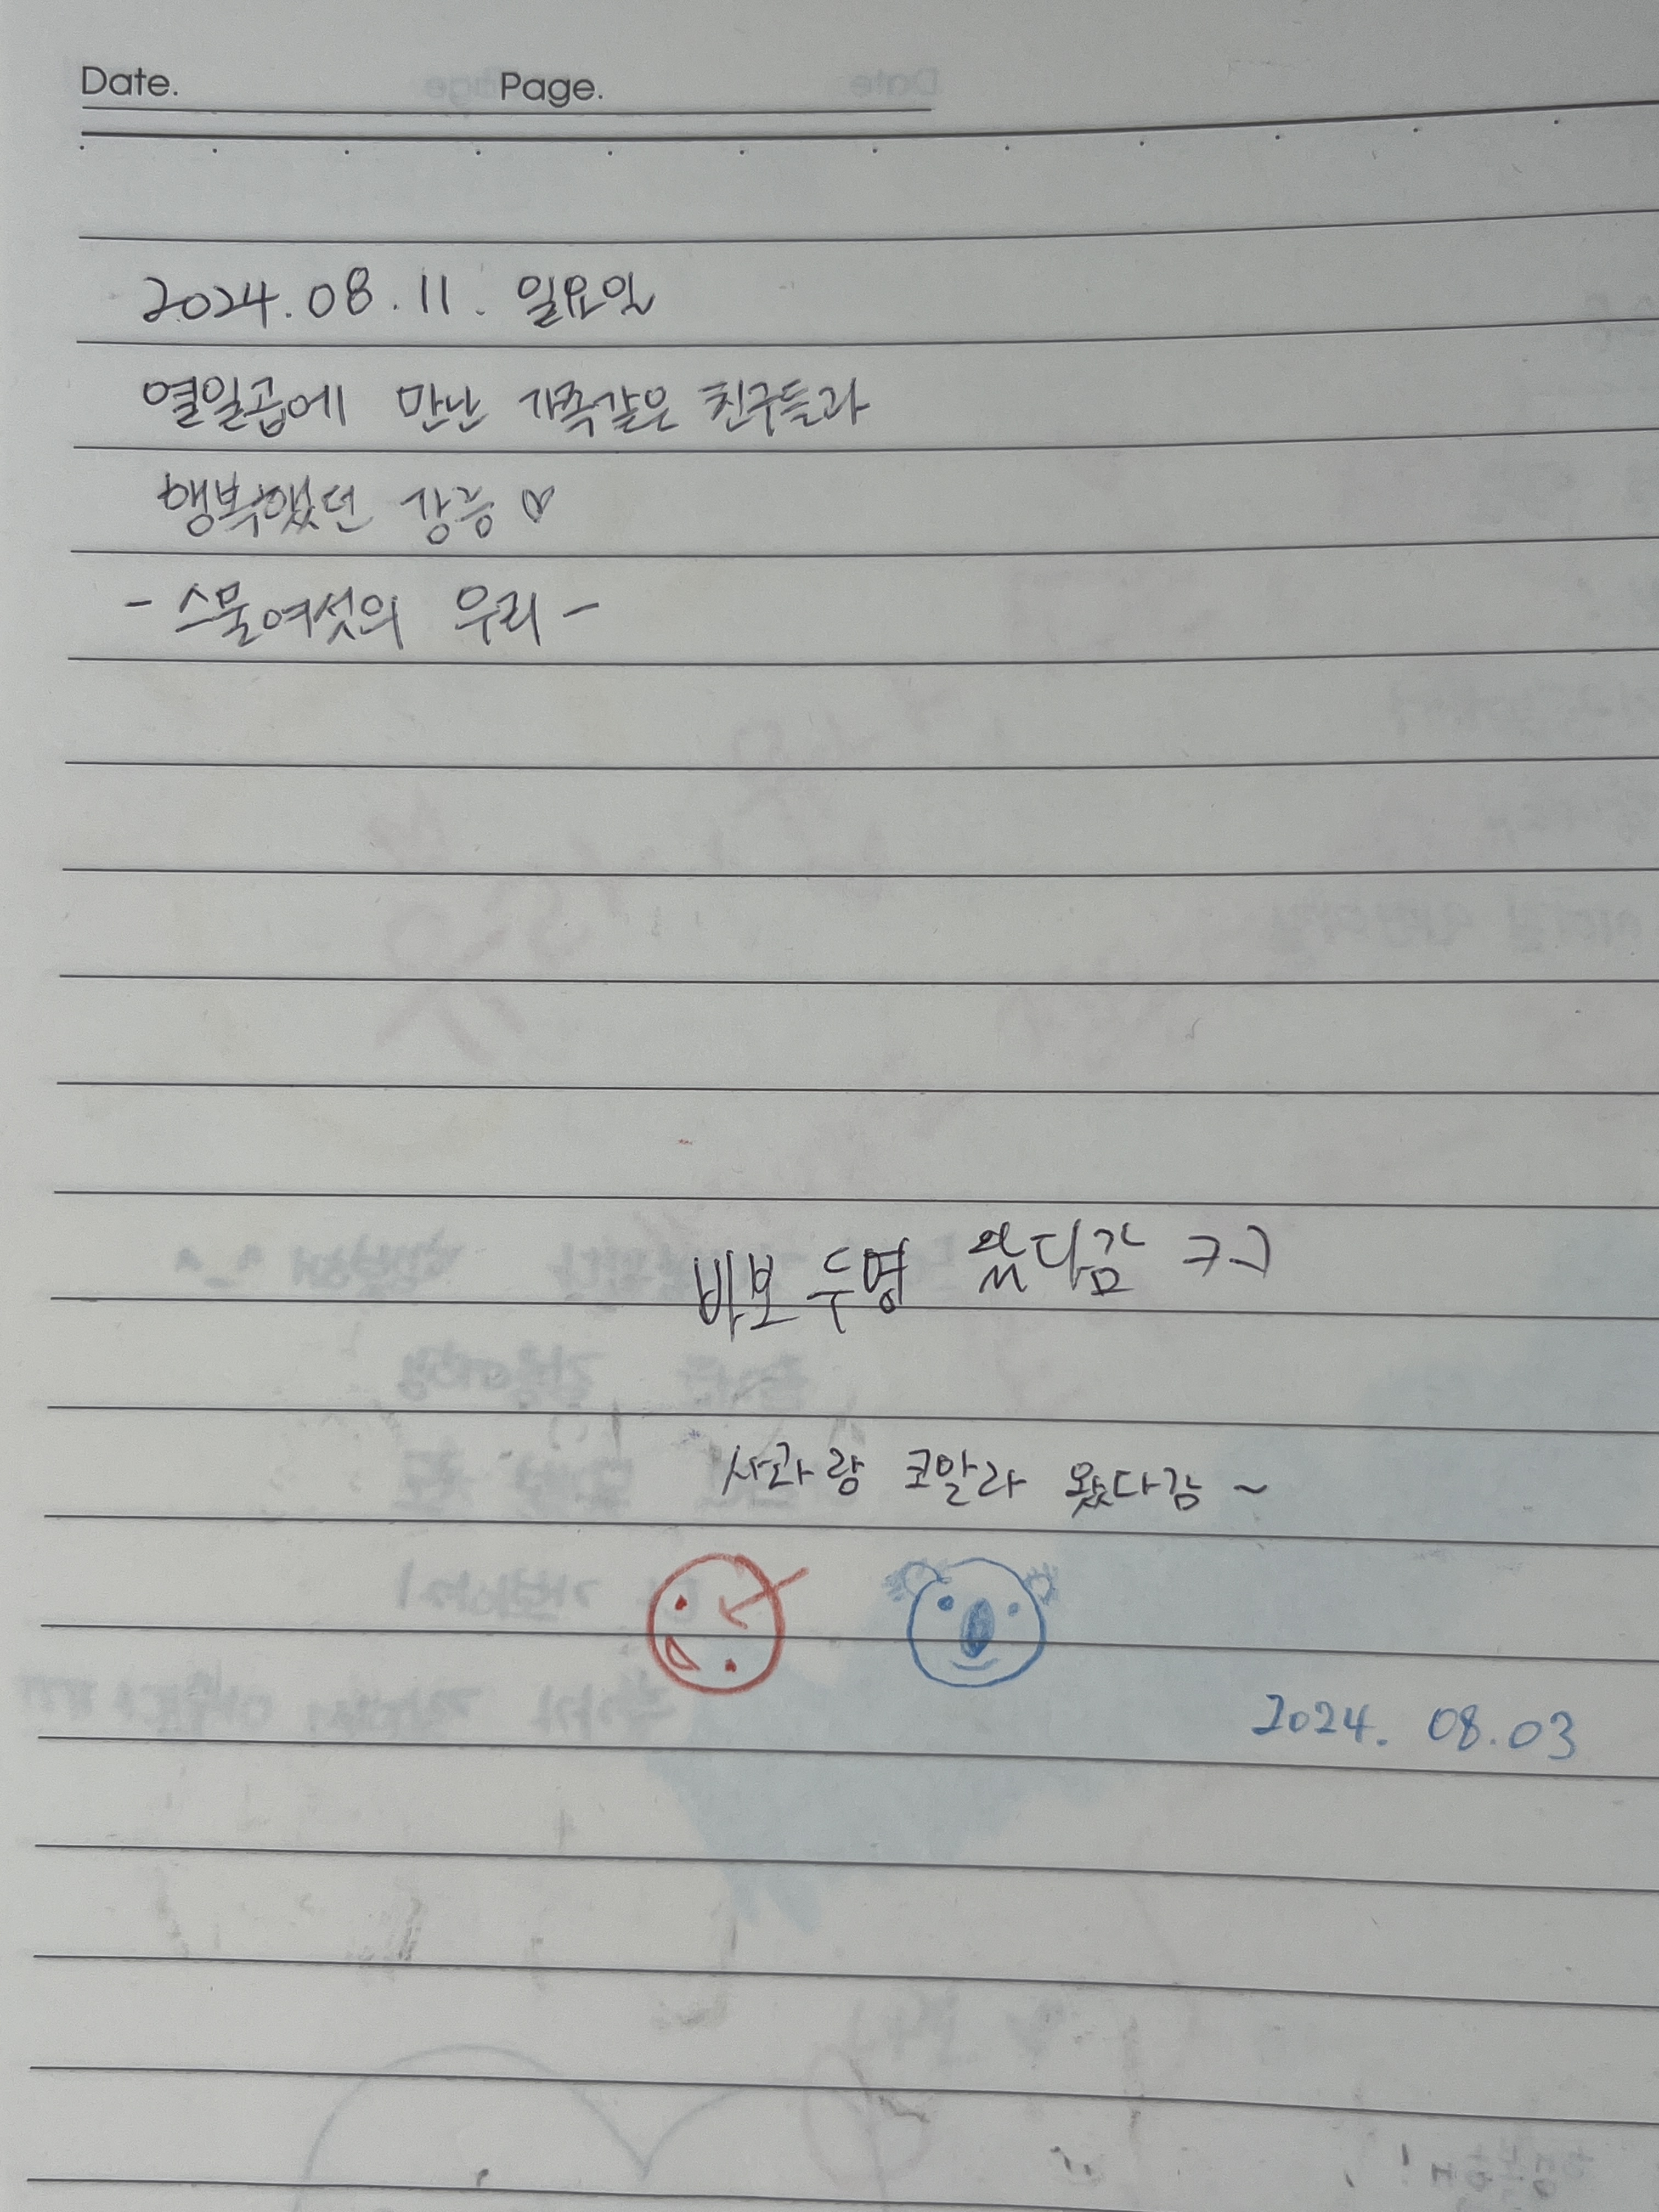 Date. Page.
2024.08.11. 일요일
열일곱에 만난 가족같은 친구들과
행복했던 강릉 ♡
- 스물여섯의 우리 -
바보 두명 왔다감 ㅋㅋ
사과랑 코알라 왔다감 ~
2024. 08.03